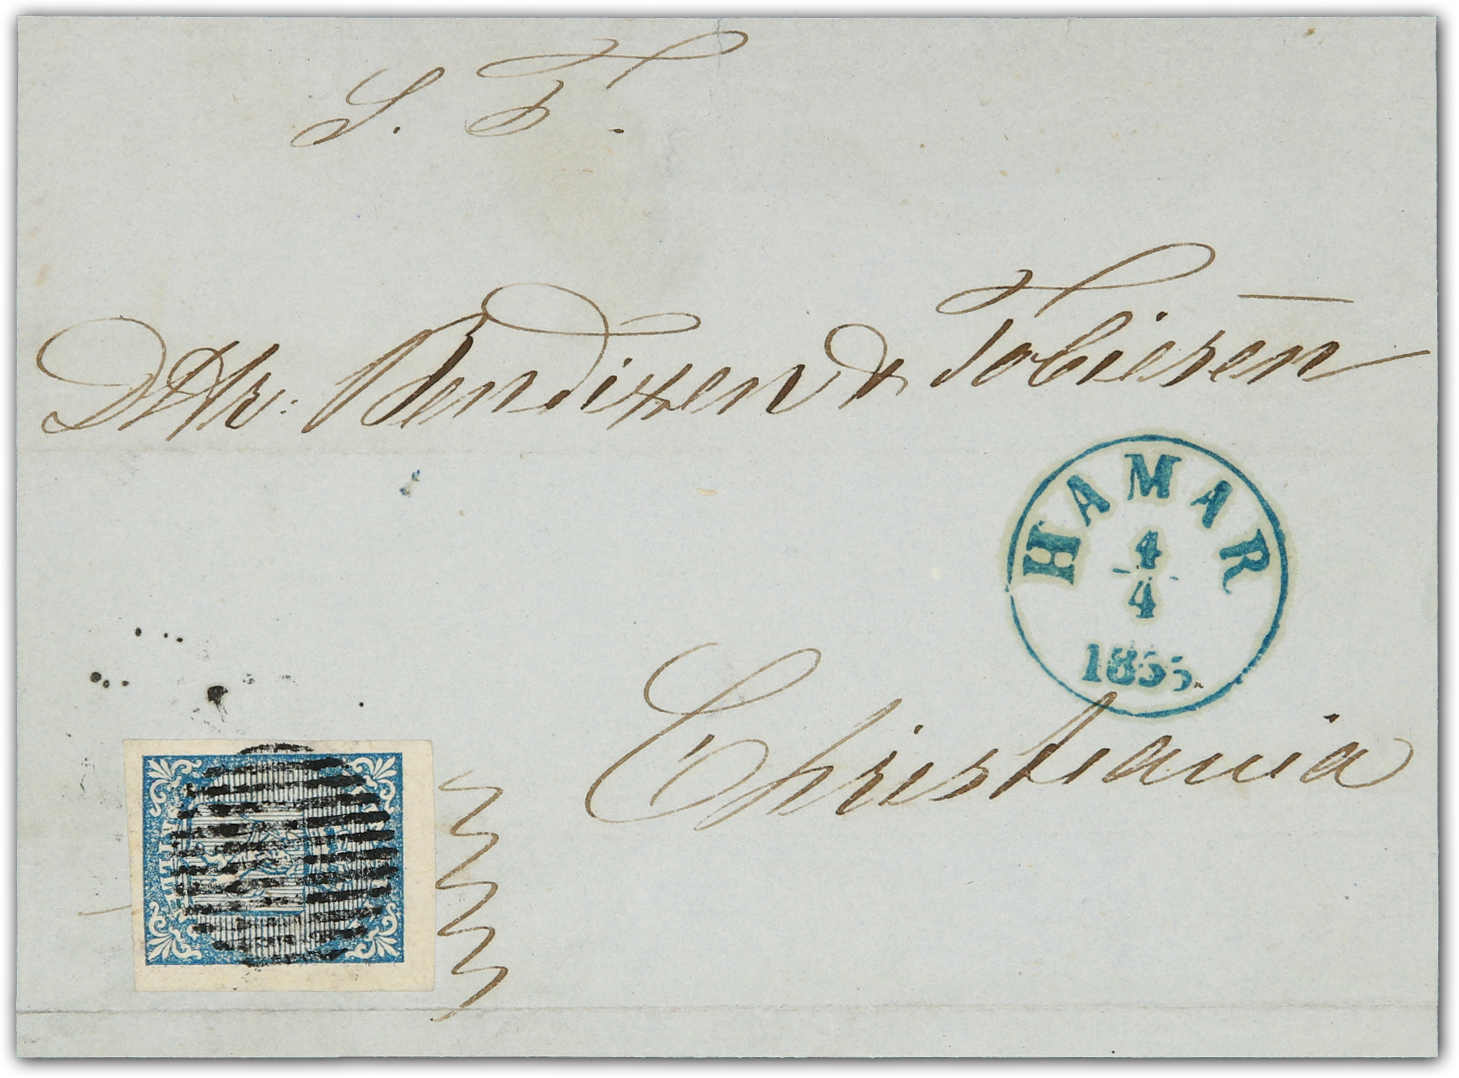 S. T.
DHr. Bendixen & Tobiesen
HAMAR
4
4
1855
Christiania